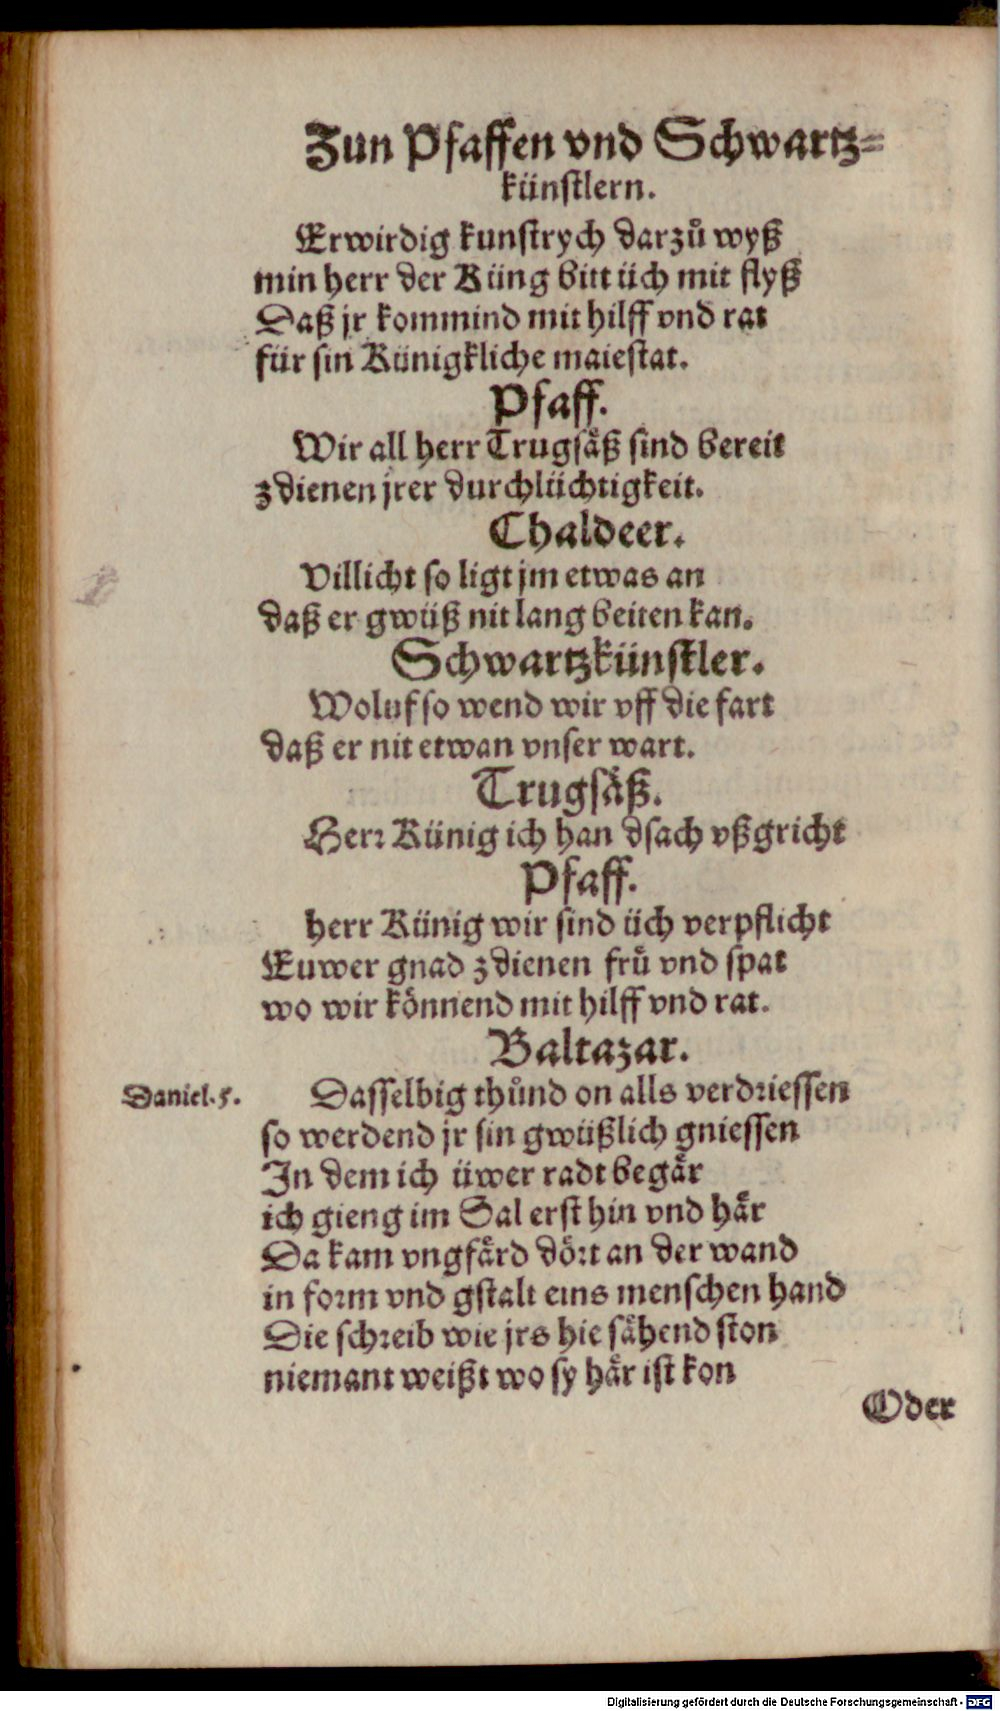 Zun Pfaffen vnd Schwartz=
künstlern.
Erwirdig kunstrych darzů wyß
min herr der Küng bitt üch mit flyß
Daß jr kommind mit hilff vnd rat
für sin Künigkliche maiestat.
Pfaff.
Wir all herr Trugsäß sind bereit
zdienen jrer durchlüchtigkeit.
Chaldeer.
Villicht so ligt jm etwas an
daß er gwüß nit lang beiten kan.
Schwartzkünstler.
Woluf so wend wir vff die fart
daß er nit etwan vnser wart.
Trugsäß.
Herr Künig ich han dsach vßgricht
Pfaff.
herr Künig wir sind üch verpflicht
Euwer gnad zdienen frü vnd spat
wo wir könnend mit hilff vnd rat.
Baltazar.
Daniel.5.
Dasselbig thůnd on alls verdriessen
so werdend jr sin gwüßlich gniessen
In dem ich üwer radt begär
ich gieng im Sal erst hin vnd här
Da kam vngfärd dört an der wand
in form vnd gstalt eins menschen hand
Die schreib wie jrs hie sähend ston
niemant weißt wo sy här ist kon
Oder
Digitalisierung gefördert durch die Deutsche Forschungsgemeinschaft - DFG